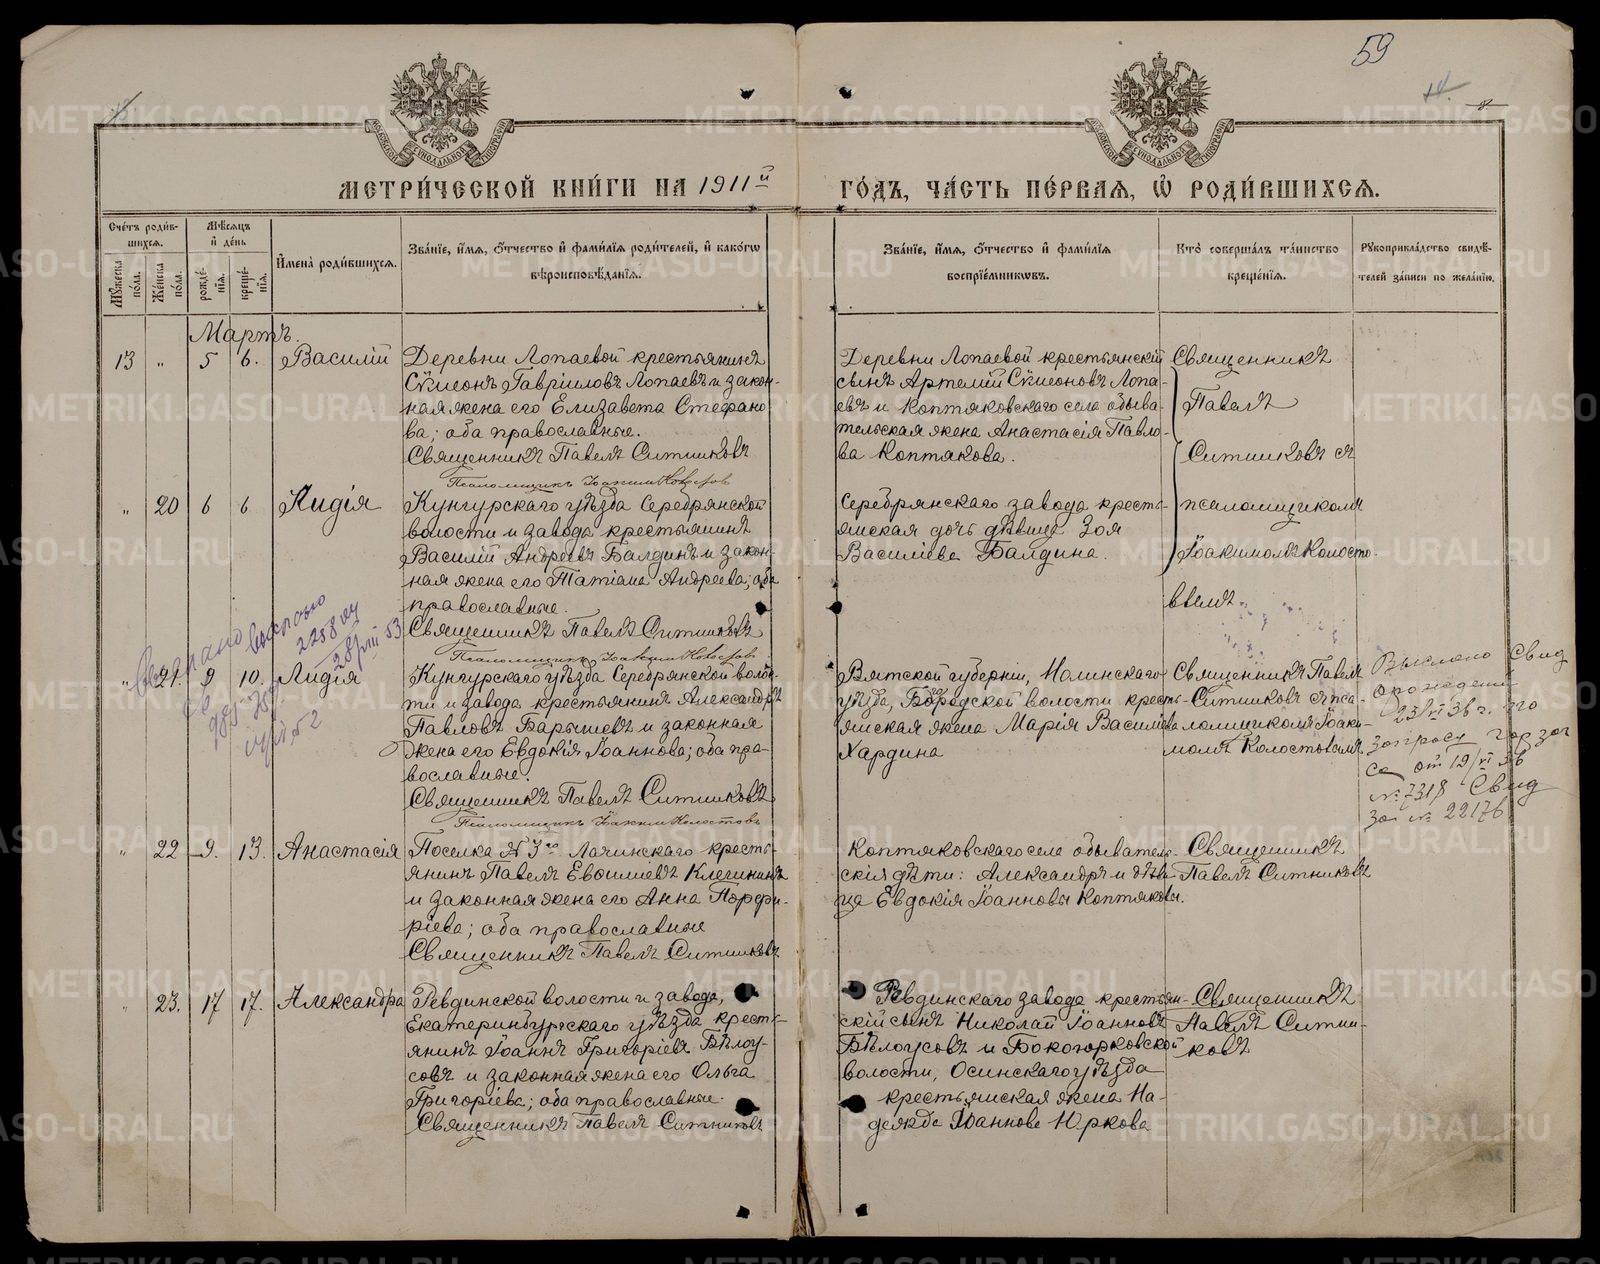 59
МЕТРИ́ЧЕСКОЙ КНИ́ГИ НА 1911й ГО́ДЪ, ЧА́СТЬ ПЕ́РВАЯ, Ѿ РОДИ́ВШИХСЯ.
Сче́тъ роди́в-
шихся.
Му́жеска по́ла.
Же́нска по́ла.
Мѣ́сяцъ
и де́нь
рожде́-
нїя.
креще́-
нїя.
Имена̀ роди́вшихся.
Зва́нїе, и́мя, о́тчество и фами́лїя роди́телей, и како́гѡ
вѣроисповѣ́данїя.
Зва́нїе, и́мя, о́тчество и фами́лїя
воспрїе́мникѡвъ.
Кто̀ соверша́лъ та́инство
креще́нїя.
Рукоприкла́дство свидѣ́-
телей за́писи по жела́нїю.
Мартъ.
13 " 5 6. Василій
Деревни Лопаевой крестьянинъ
Сѵмеонъ Гавріиловъ Лопаевъ и закон-
ная жена его Елизавета Стефано-
ва; оба православные.
Священникъ Павелъ Ситниковъ
Псаломщикъ Іоакимъ
Деревни Лопаевой крестьянскій
сынъ Артемій Сѵмеоновъ Лопа-
евъ и Коптяковскаго села обыва-
тельская жена Анастасія Павло-
ва Коптякова.
Священникъ
Павелъ
Ситниковъ съ
псаломщикомъ
Іоакимомъ Колосто-
вымъ
" 20 6 6 Лидія
Кунгурскаго уѣзда Серебрянской
волости и завода крестьянинъ
Василій Андреевъ Балдинъ и закон-
ная жена его Татіана Андреева; оба
православные.
Священникъ Павелъ Ситниковъ
Псаломщикъ Іоакимъ
Серебрянскаго завода кресть-
янская дочь дѣвица Зоя
Василіева Балдина.
" 21. 9 10. Лидія
Кунгурскаго уѣзда Серебрянской волос-
ти и завода крестьянинъ Александръ
Павловъ Барышевъ и законная
жена его Евдокія Іоаннова; оба пра-
вославные.
Священникъ Павелъ Ситниковъ
Псаломщикъ Іоакимъ Колостовъ
Вятской губерніи, Нолинскаго
уѣзда, волости кресть-
янская жена Марія Василіева
Хардина
Священникъ Павелъ
Ситниковъ съ пса-
ломщикомъ Іоаки-
момъ Колостовымъ
Выслано Свид
о рождении
23/VI 36 г. по
запросу
от 19/VI 36
№ 7318 Свид
за № 22176
2258
" 22 9. 13. Анастасія
Поселка № 3го Лачинскаго кресть-
янинъ Павелъ Евѳиміевъ Клешнинъ
и законная жена его Анна Порфи-
ріева; оба православные
Священникъ Павелъ Ситниковъ
Коптяковскаго села обыватель-
скія дѣти: Александръ и дѣви-
ца Евдокія Іоанновы Коптяковы.
Священникъ
Павелъ Ситниковъ
" 23. 17 17. Александра
Ревдинской волости и завода,
Екатеринбургскаго уѣзда кресть-
янинъ Іоаннъ Григоріевъ Бѣлоу-
совъ и законная жена его Ольга
Григоріева; оба православные.
Священникъ Павелъ Ситниковъ
Ревдинскаго завода крестьян-
скій сынъ Николай Іоанновъ
Бѣлоусовъ и
волости, Осинскаго уѣзда
крестьянская жена На-
дежда Іоаннова Юркова
Священникъ
Павелъ Ситни-
ковъ
METRIKI.GASO-URAL.RU